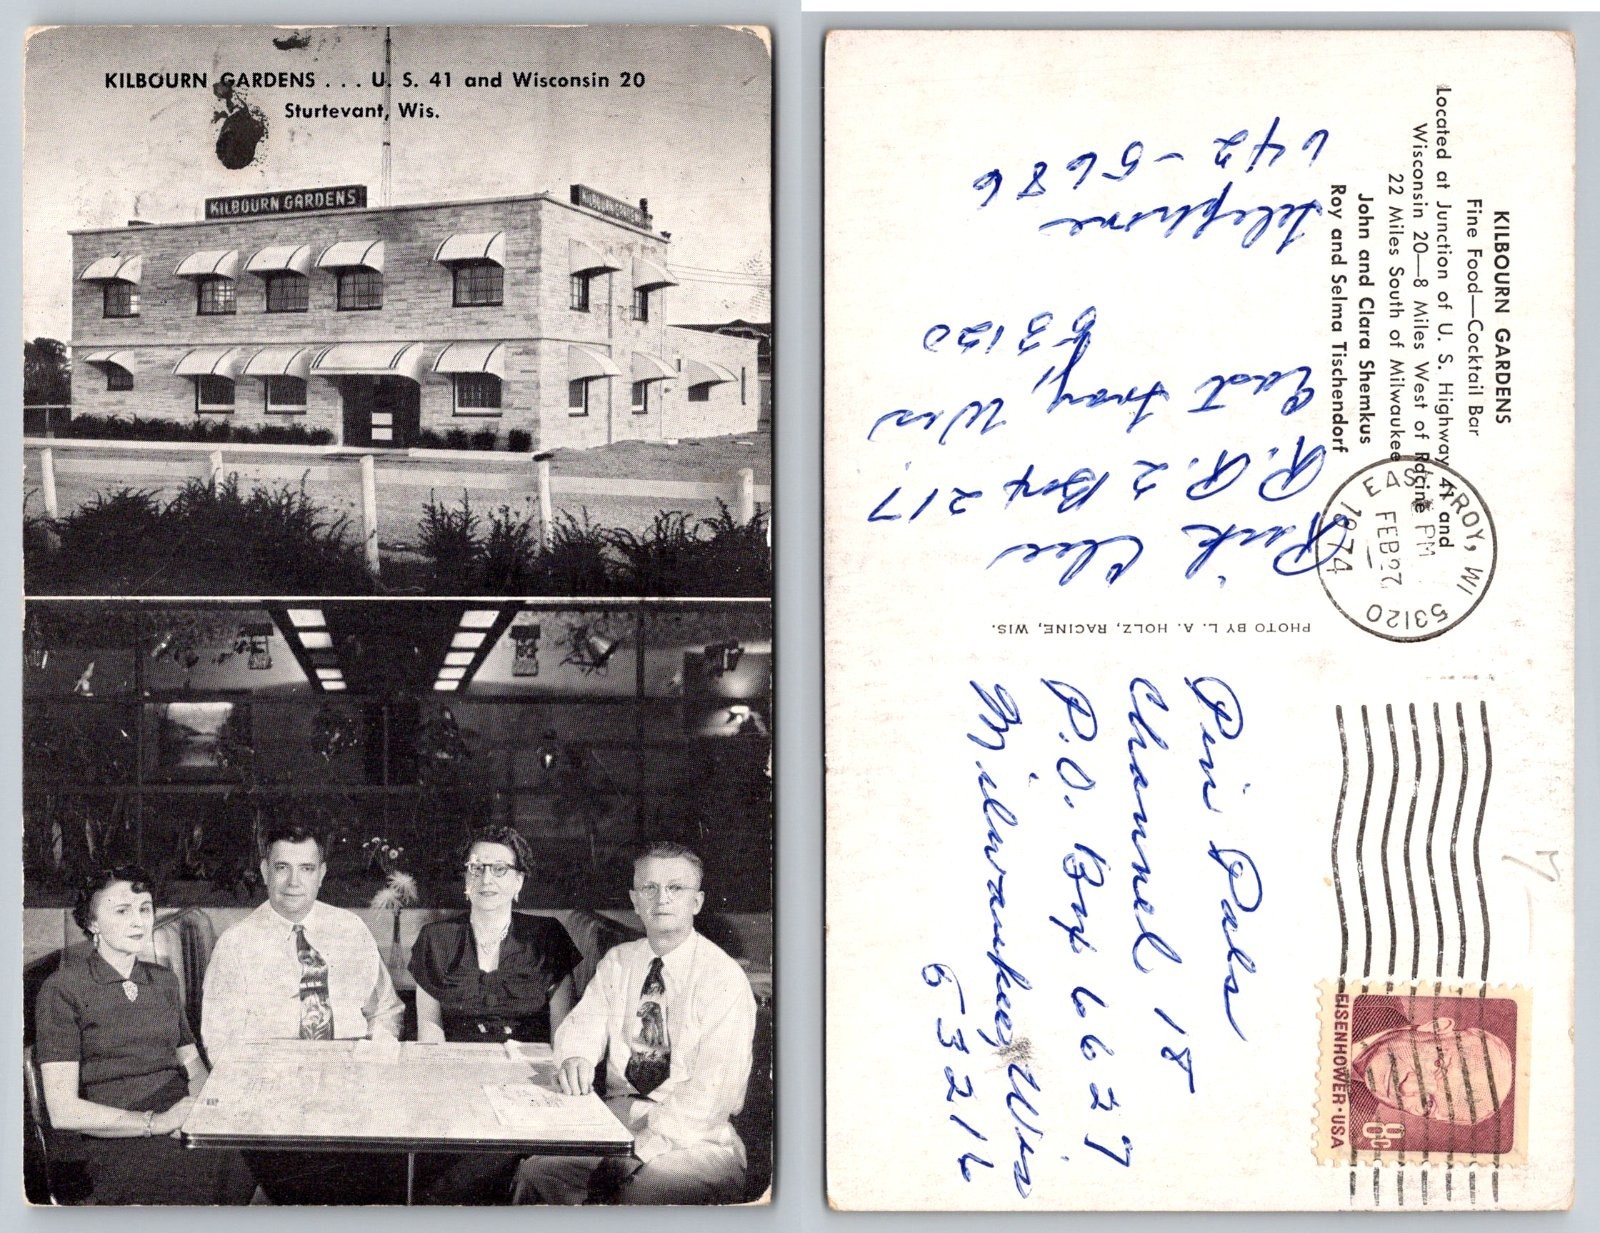 KILBOURN GARDENS . . . U. S. 41 and Wisconsin 20
Sturtevant, Wis.
KILBOURN GARDENS
KILBOURN GARDENS
Fine Food—Cocktail Bar
Located at Junction of U. S. Highway 41 and
Wisconsin 20—8 Miles West of Racine
22 Miles South of Milwaukee
John and Clara Shemkus
Roy and Selma Tischendorf
Telephone
642-5686
R.R. 2 Box 217
East Troy, Wis
53120
PHOTO BY L. A. HOLZ, RACINE, WIS.
EAST TROY, WI
PM
FEB 27
1974
53120
Pin Pals
Channel 18
P.O. Box 6627
Milwaukee, Wis
53216
EISENHOWER·USA
8c